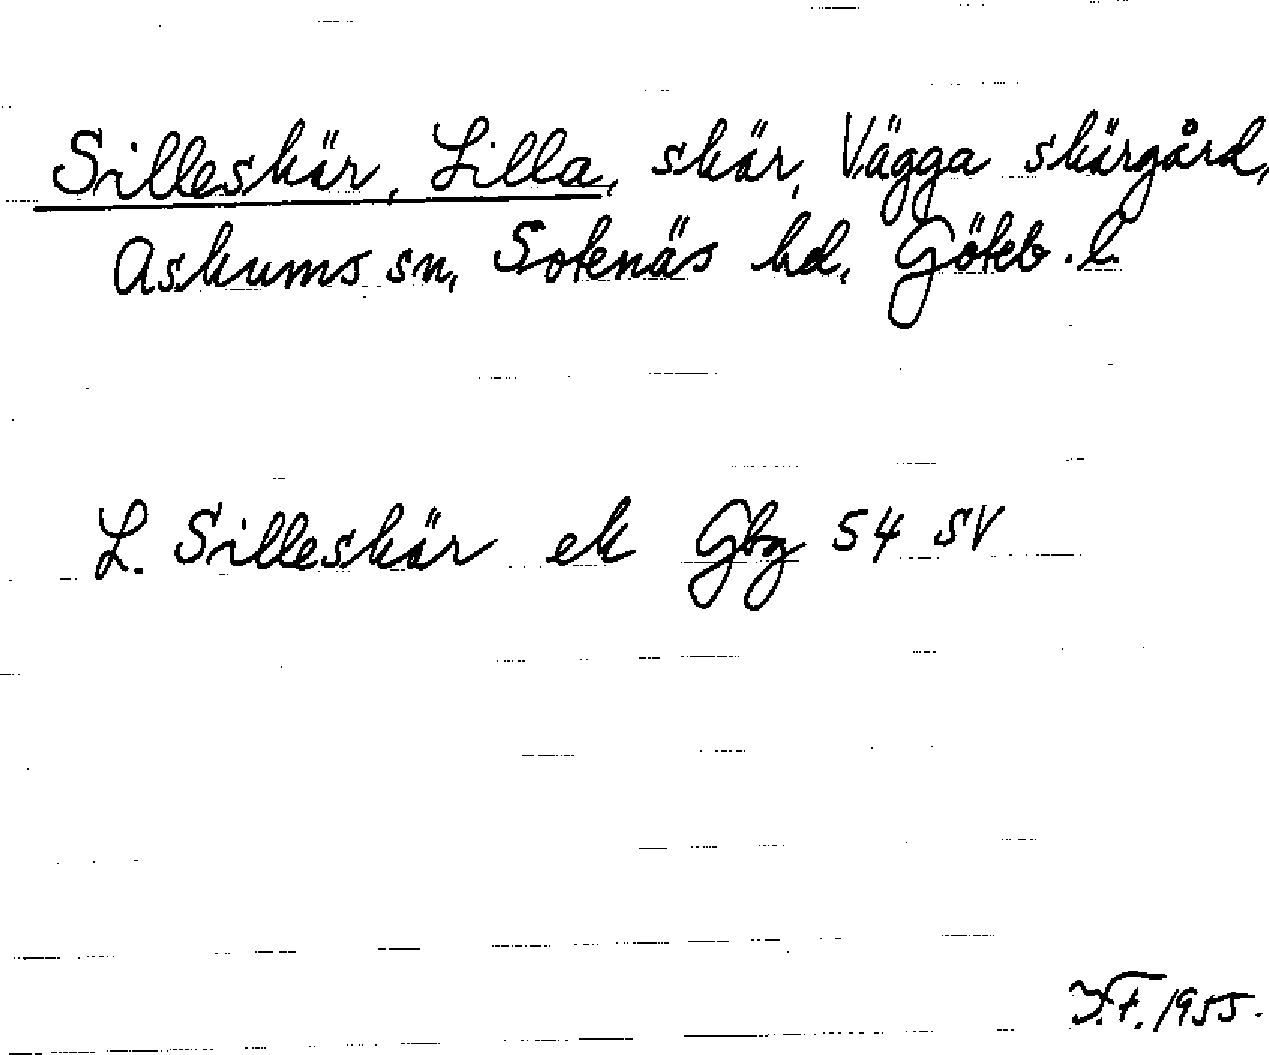 Silleskär, Lilla, skär, Vägga skärgård,
Askums sn, Sotenäs hd, Göteb. l.
L. Silleskär ek Gbg 54 SV
I.F. 1955.